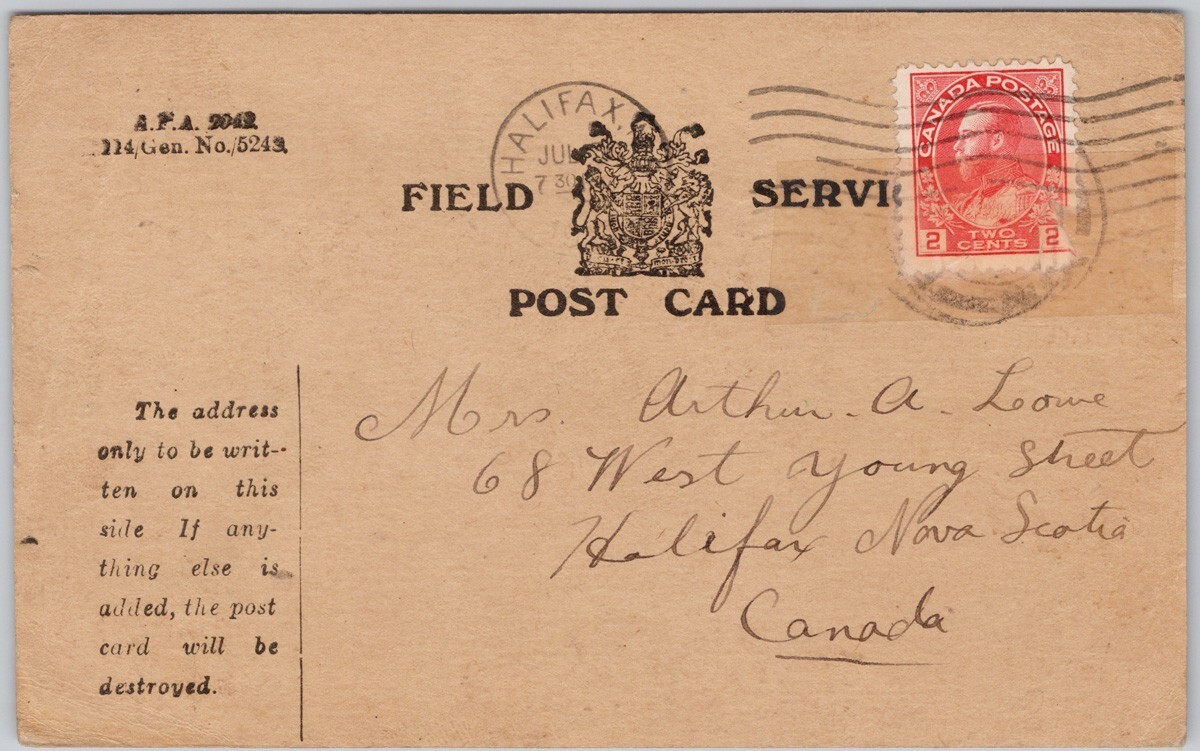 A.F.A. 2042.
114/Gen. No./5248.
HALIFAX,
JUL
7 30
CANADA POSTAGE
2 TWO CENTS 2
FIELD SERVIC
POST CARD
The address
only to be writ-
ten on this
side If any-
thing else is
added, the post
card will be
destroyed.
Mrs. Arthur. A. Lowe
68 West Young Street
Halifax Nova Scotia
Canada